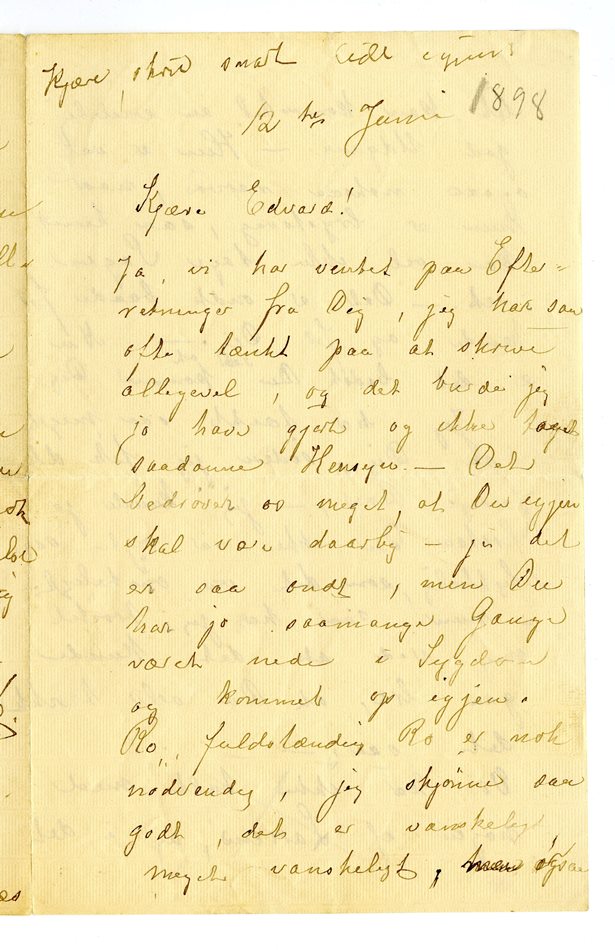 Kjære, skriv snart lidt igjen!
12te Juni 1898
Kjære Edvard!
Ja, vi har ventet paa Efter=
retninger fra Dig, jeg har saa
ofte tænkt paa at skrive
allegevel, og det burde jeg
jo have gjort og ikke taget
saadanne Hensyn. — Det
bedrøver os meget, at Du igjen
skal være daarlig — ja det
er saa ondt, men Du
har jo saamange Gange
været nede i Sygdom
og kommet op igjen.
Ro, fuldstændig Ro er nok
nødvendig, jeg skjønner saa
godt, det er vanskeligt,
meget vanskeligt, men ogsaa